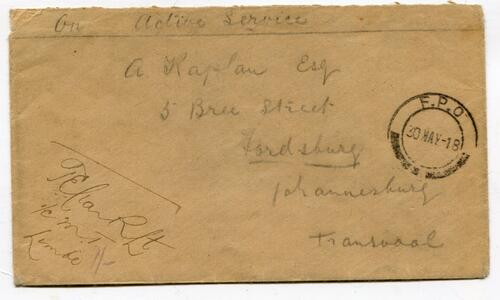 On Active Service
A Kaplan Esq
5 Bree Street
Fordsburg
Johannesburg
Transvaal
F.P.O
30 MAY-18
Lt